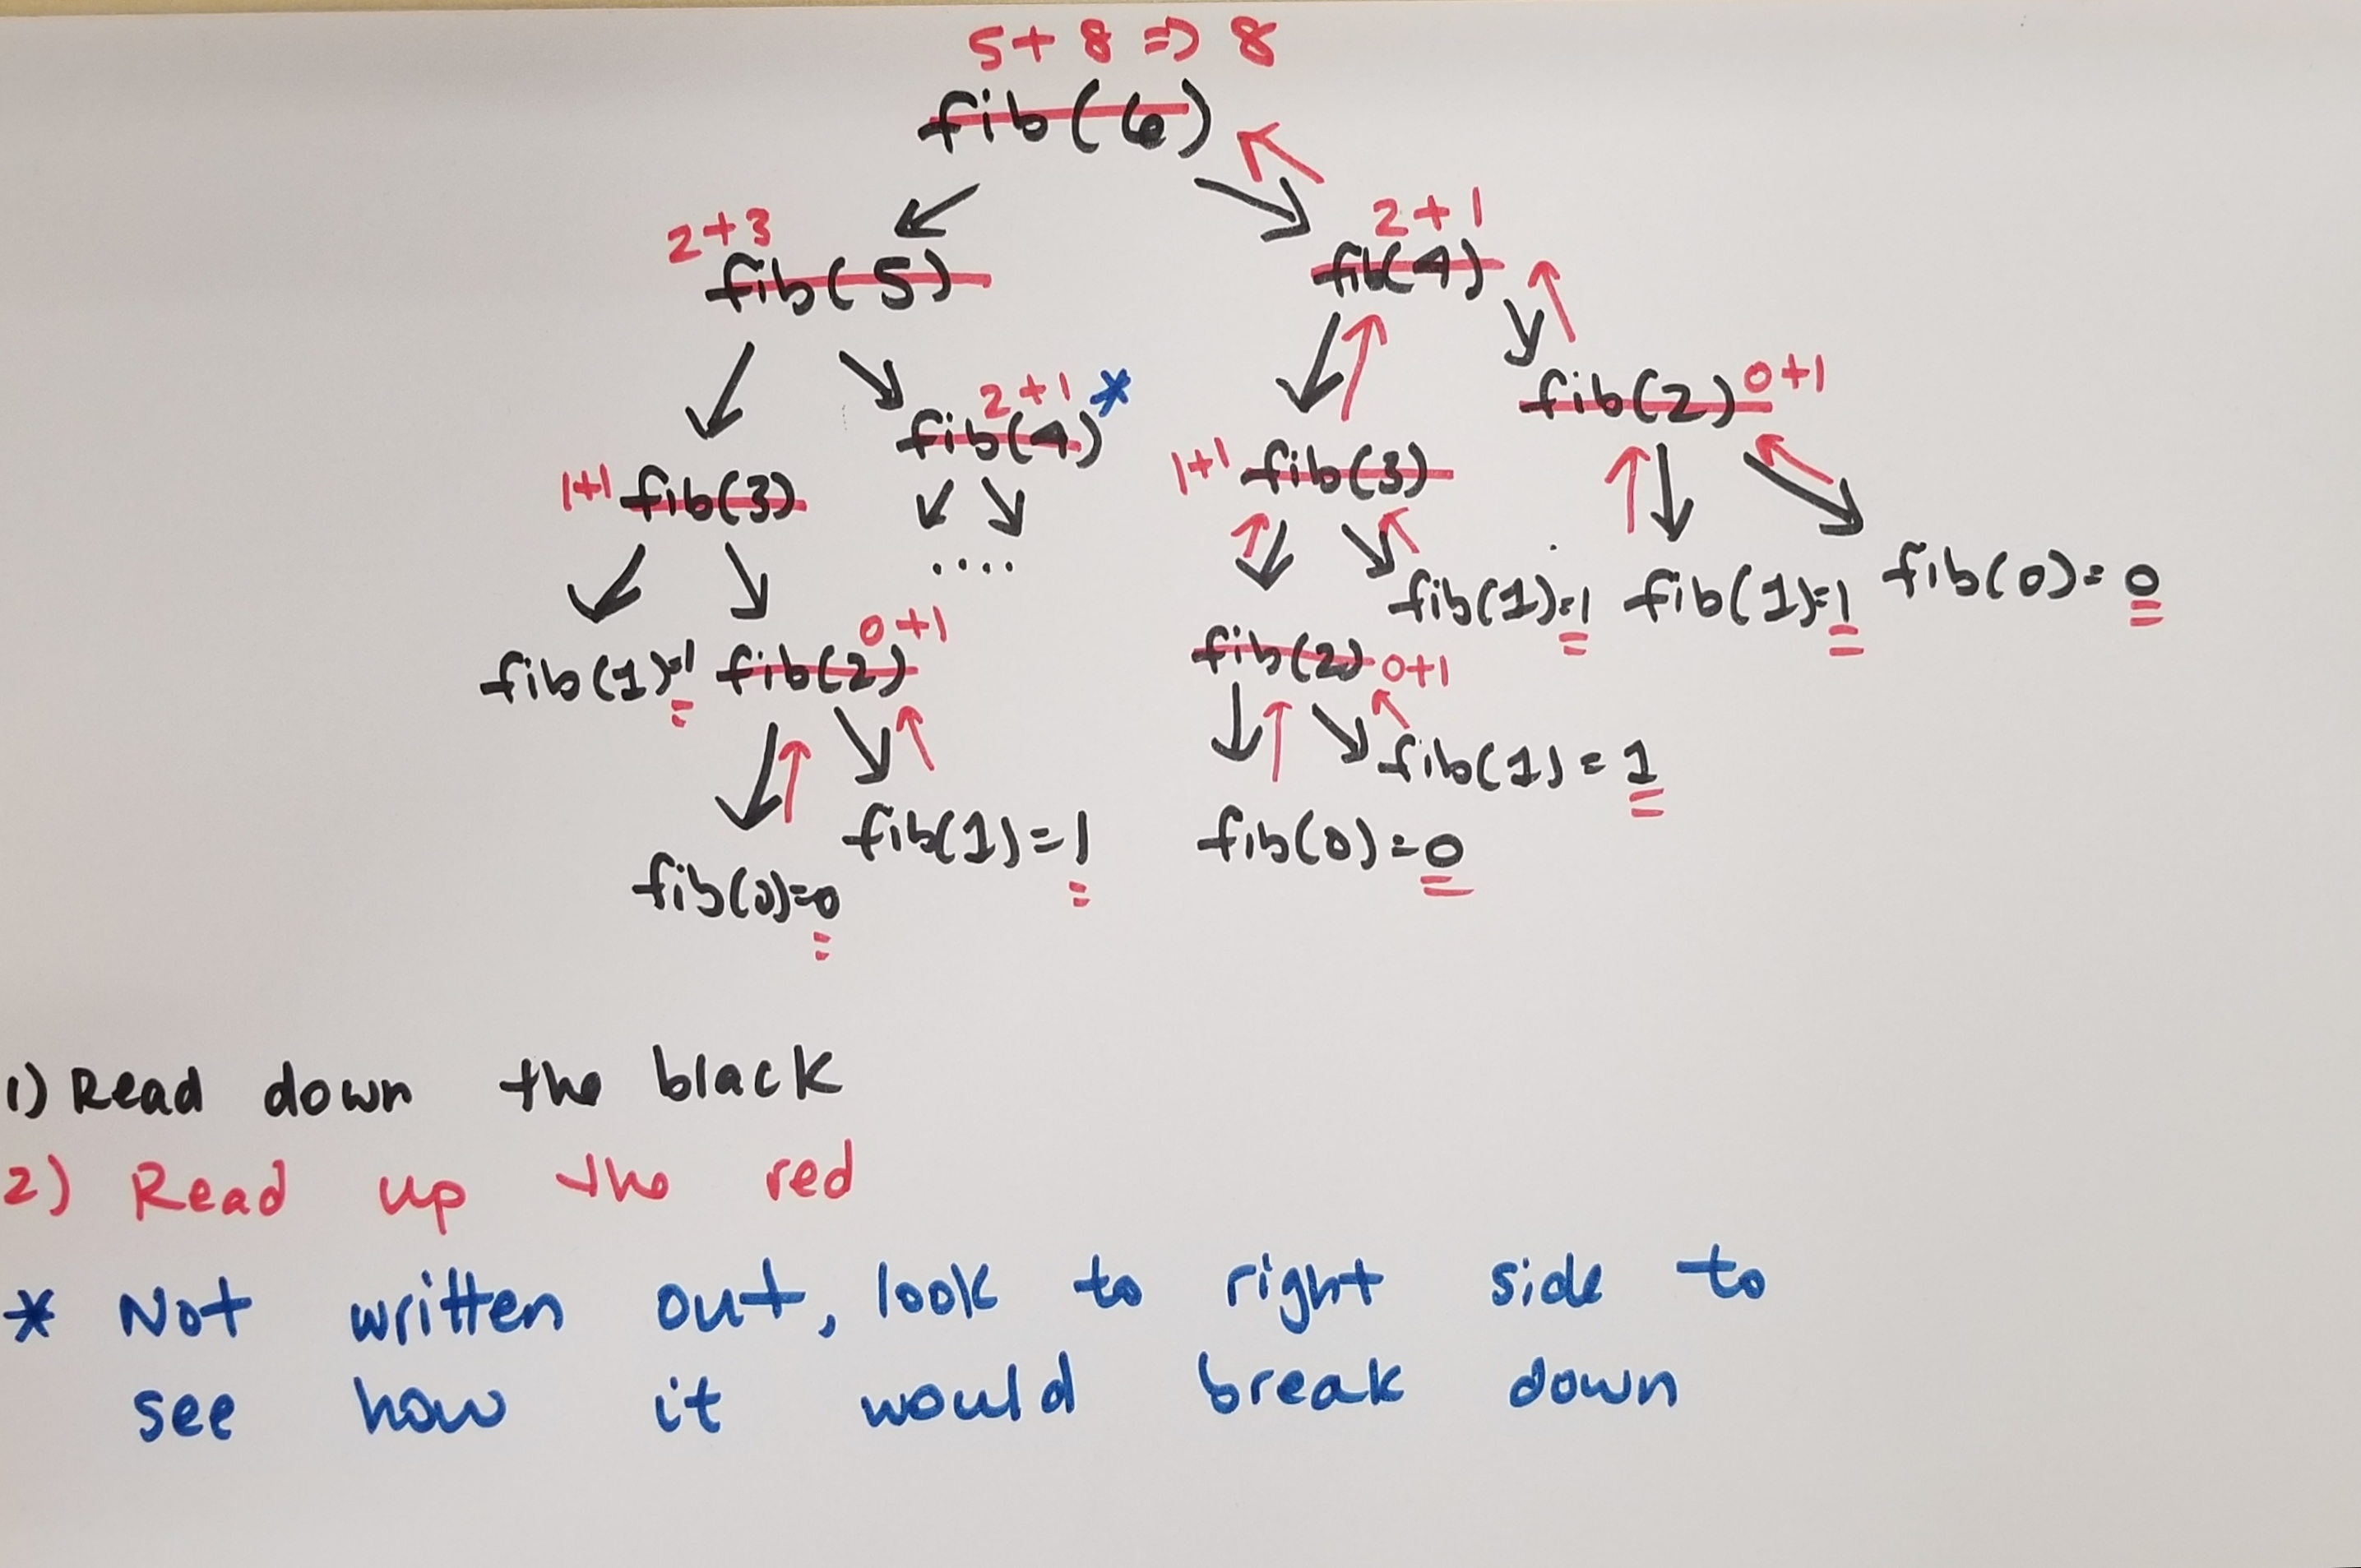 5 + 8 => 8
fib(6)
2+3
fib(5)
2+1
fib(4)
2+1 *
fib(4)
fib(2) 0+1
1+1 fib(3)
1+1 fib(3)
....
fib(1)=1
fib(1)=1
fib(0)=0
fib(1)=1
fib(2) 0+1
fib(2) 0+1
fib(1)=1
fib(0)=0
fib(1)=1
fib(0)=0
1) Read down the black
2) Read up the red
* Not written out, look to right side to
see how it would break down